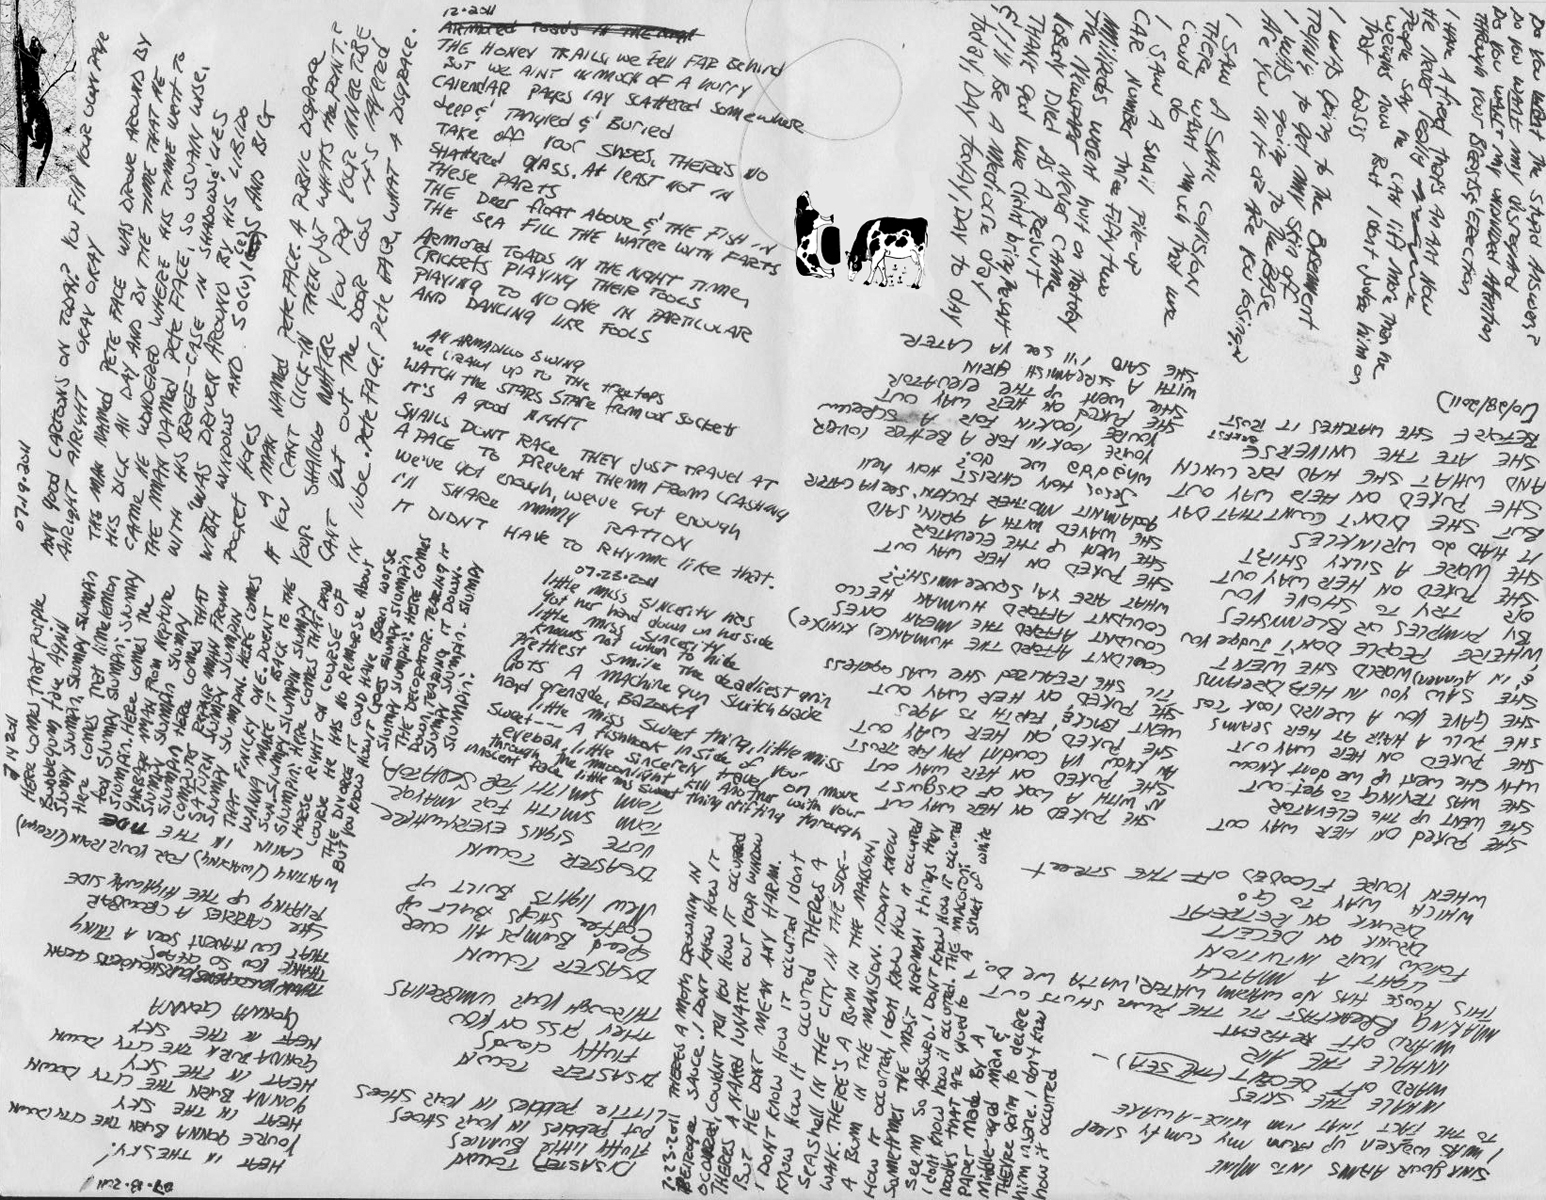 12.2011
Armored Toads in the night
THE HONEY TRAILS, WE FELL FAR BEHIND
BUT WE AINT IN MUCH OF A HURRY
CALENDAR PAGES LAY SCATTERED SOMEWHERE
DEEP & TANGLED & BURIED
TAKE OFF YOUR SHOES, THERE'S NO
SHATTERED GLASS. AT LEAST NOT IN
THESE PARTS
THE DEER FLOAT ABOVE & THE FISH IN
THE SEA FILL THE WATER WITH FARTS
ARMORED TOADS IN THE NIGHT TIME,
CRICKETS PLAYING THEIR TOOLS
PLAYING TO NO ONE IN PARTICULAR
AND DANCING LIKE FOOLS
AN ARMADILLO SWING
WE CRAWL UP TO THE TREETOPS
WATCH THE STARS STARE FROM OUR SOCKETS
IT'S A GOOD NIGHT
SNAILS DON'T RACE THEY JUST TRAVEL AT
A PACE TO PREVENT THEM FROM CRASHING
WE'VE GOT ENOUGH, WE'VE GOT ENOUGH
I'll SHARE MY RATION
IT DIDN'T HAVE TO RHYME LIKE THAT.
07.23.2011
little miss sincerity has
got her hand down on her side
little miss sincerity
knows not when to hide
Prettiest smile the deadliest grin
Gots A machine gun switchblade
hand grenade, BAZOOKA
little miss sweet thing, little miss
sweet-- A fishhook inside of your
eyeball, little sincerely travel on move
through the moonlight kill Another with your
innocent face little miss sweet thing drifting through
07.19.2011
ANY GOOD CARTOONS ON TODAY? YOU FLIP YOUR OWN PAGE
AlRIGHT AlRIGHT OKAY OKAY
THE MAN NAMED PETE FACE WAS DROVE AROUND BY
HIS DICK ALL DAY AND BY THE TIME THAT HE
CAME HE WONDERED WHERE HIS TIME WENT TO
THE MAN NAMED PETE FACE, SO USUALLY WISE,
WITH HIS BRIEF-CASE IN SHADOWS & LIES
WAS DRIVEN AROUND BY HIS LIBIDO
WITH WINDOWS AND AND BIG
POCKET HOLES
IF YOU A MAN NAMED PETE FACE. A PUBLIC DISGRACE
YOU CAN'T CLICK-IN THEN JUST WHATS THE POINT?
YOUR SHALLOW NATURE YOU PUT YOUR INNER TUBE
CAN'T PUT OUT THE DOOR COS IT'S LAYERED
IN lUBE. PETE FACE! PETE FACE, WHAT A DISGRACE.
7 19 2011
HERE COMES THAT PURPLE
Bubblegum tide AGAIN
Slumpy Slumpin, Slumpy Slumpin
Here comes that lime lemon
fool Slumpy Slumpin. Here comes the
GARBAGE MAN FROM Neptune
Slumpy Slumpin Slumpy
Slumpin Here comes that
COMPUTER REPAIR MAN FROM
SATURN Slumpy Slumpin
THAT FINLEY ONE. DON'T
WANNA MAKE IT BACK TO THE
SUN. Slumpy Slumpin Slumpy
Slumpin. HERE COMES THAT DAMN
HORSE RIGHT ON COURSE OF
COURSE HE HAS NO REMORSE ABOUT
THE DIVORCE IT COULD HAVE BEEN WORSE
BUT YOU KNOW HOW IT GOES Slumpy Slumpin
Slumpy Slumpin! HERE COMES
THE DECORATOR. TEARING IT
DOWN, TEARING IT DOWN.
Slumpy Slumpin. Slumpy
Slumpin!
07.18.2011
HEAT IN THE SKY!
YOU'RE GONNA BURN THE CITY DOWN
HEAT IN THE SKY
GONNA BURN THE CITY DOWN
HEAT IN THE SKY
GONNA BURN THE CITY DOWN
HEAT IN THE SKY
GONNA GONNA
THANK YOU SO
THAT YOU HAVENT SEEN A THING
SHE CARRIES A CROWBAR
RIPPING UP THE HIGHWAY SIDE
WAITING (WAITING) FOR YOUR RAIN (REIGN)
CALLIN IN THE TIDE
DISASTER TOWN
FLUFFY LITTLE BUNNIES
PUT PEBBLES IN YOUR SHOES
LITTLE PEBBLES IN YOUR SHOES
DISASTER TOWN
FLUFFY CLOUDS
THEY PISS ON YOU
THROUGH YOUR UMBRELLAS
DISASTER TOWN
SPEED BUMPS ALL OVER
COFFEE SHOPS BUILT UP
NEW LIGHTS BUILT UP
DISASTER TOWN
VOTE SIGNS EVERYWHERE
TOM SMITH FOR MAYOR
TOM SMITH FOR SENATOR
7.23.2011 THERE'S A MOTH DROWNING IN
BEIRDGUE SAUCE. I DON'T KNOW HOW IT
OCCURRED, COULDN'T TELL YOU HOW IT OCCURRED
THERE'S A NAKED LUNATIC OUT YOUR WINDOW
BUT HE DON'T MEAN ANY HARM.
I DON'T KNOW HOW IT OCCURRED I don't
KNOW HOW IT OCCURRED THERE'S A
SEASHELL IN THE CITY IN THE SIDE-
WALK. THERE'S A BUM IN THE MANSION,
A BUM IN THE MANSION. I DON'T KNOW
HOW IT OCCURRED, I don't KNOW HOW IT OCCURRED
SOMETIMES THE MOST NORMAL THINGS THEY
SEEM SO ABSURD. I DON'T KNOW HOW IT OCCURRED
I don't know how it occurred. THE MACARONI
noodles THAT ARE GLUED TO A SHEET OF WHITE
PAPER MADE BY A
MIDDLE-AGED MAN &
THEY'RE GOIN TO DECLARE
him insane. I don't know
how it occurred
SINK YOUR ARMS INTO MINE
I WAS WOKEN UP FROM MY COMFY SLEEP
TO THE FACT THAT I'M WIDE-AWAKE
INHALE THE SKIES
WARD OFF DECEIT (THE SEA) -
INHALE THE AIR
WARD OFF RETREAT
MAKING BREAKFAST TIL THE POWER SHUTS OUT
THIS HOUSE HAS NO WARM WATER, WATTA WE DO.
LIGHT A MATCH
FOLLOW YOUR INTUITION
DRUNK ON DECEIT
DRUNK ON RETREAT
WHICH WAY TO GO
WHEN YOU'RE FLOODED OFF THE STREET
SHE PUKED ON HER WAY OUT
SHE WENT UP THE ELEVATOR
SHE WAS TRYING TO GET OUT
WHY SHE WENT UP WE DON'T KNOW
SHE PUKED ON HER WAY OUT
SHE PULL A HAIR AT HER SEAMS
SHE GAVE YOU A WEIRD LOOK COS
SHE SAW YOU IN HER DREAMS
& IN A(NUMEN)WORLD SHE WENT
WHERE PEOPLE DON'T JUDGE YOU
BY PIMPLES OR BLEMMISHES
OR TRY TO SHOVE YOU
SHE PUKED ON HER WAY OUT
SHE WORE A SILKY SHIRT
IT HAD 20 WRINKLES
BUT SHE DIDN'T COUNT THAT DAY
SHE PUKED ON HER WAY OUT
AND WHAT SHE HAD FOR LUNCH
SHE ATE THE UNIVERSE
BEFORE SHE WATCHES IT RUST
(10/28/2011)
SHE PUKED ON HER WAY OUT
N' WITH A LOOK OF DISGUST
SHE PUKED ON HER WAY OUT
AN KNEW YA COULDN'T PAY FOR TRUST
SHE PUKED ON HER WAY OUT
WENT BACK & FORTH TO AGES
SHE PUKED ON HER WAY OUT
TIL SHE REALIZED SHE WAS ADDRESS
COULDN'T AFFORD THE (HUMANE) KIND(E)
COULDN'T AFFORD THE MEAN ONES
COULDN'T AFFORD HUMAN HELLO
WHAT ARE YA, SQUEEMISH??
SHE PUKED ON HER WAY OUT
SHE WENT UP THE ELEVATOR
SHE WAVED WITH A GRIN, SAID
GODAMNIT MOTHER FUCKIN, SEE YA LATER
JESUS HAY CHRIST HAY HELL
WHADDA WE DO?
YOU'RE LOOKIN FOR A BETTER LOVER
YOU'RE LOOKIN FOR A SCREAM
SHE PUKED ON HER WAY OUT
SHE WENT UP THE ELEVATOR
WITH A SCREAMISH GRIN
SHE SAID I'll SEE YA LATER
Do you want the stupid ANSWER?
Do you WANT my disregard
Do you want my undivided attention
through your Biggest Erection
I HAVE A friend there's AN ANT NOW
He weighs really
People say he CAN lift more than he
weighs now But I don't judge him on
that basis
I WAS going to the BASEMENT
TRYING TO GET MY SPIN OFF
I WAS going to the BASE
ARE YOU IN IT OR ARE YOU LOSING
I SAW A SNAIL COLLISION
THERE WASN'T MUCH THAT WE
COULD DO
I SAW A SNAIL PILE-UP
CAR NUMBER three fifty two
Millipedes weren't hurt on thursday
THE NEWSPAPER NEVER CAME
NOBODY DIED AS A RESULT
THANK GOD WE didn't bring heart
& it'll BE A MEDIOCRE DAY
TODAY, DAY TODAY, DAY TO DAY